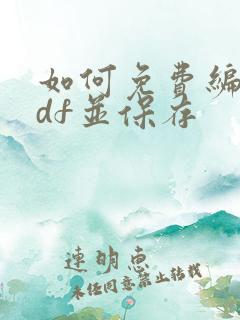 如何免费编
df 并保存
连明惠
未经同意禁止转载